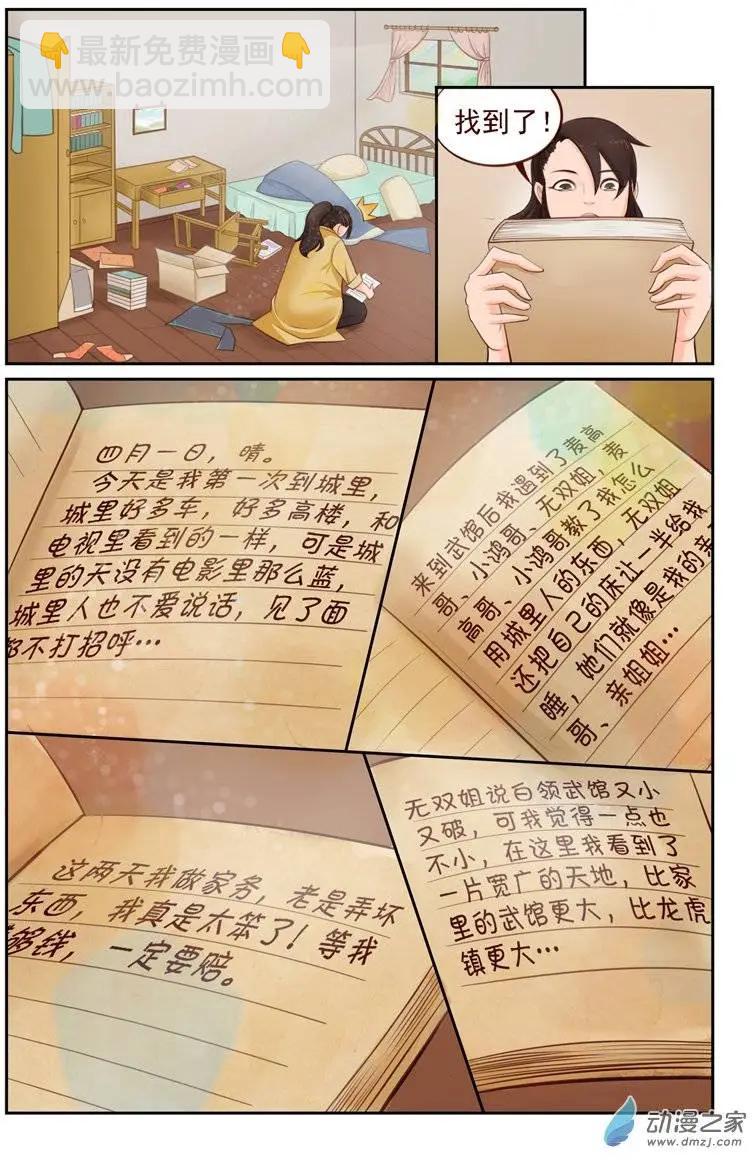 👇最新免费漫画👇
www.baozimh.com
找到了！
四月一日，晴。
今天是我第一次到城里，
城里好多车，好多高楼，和
电视里看到的一样，可是城
里的天没有电影里那么蓝，
城里人也不爱说话，见了面
都不打招呼…
来到武馆后我遇到了麦高
哥、小鸿哥、无双姐，麦
高哥、小鸿哥教了我怎么
用城里人的东西，无双姐
还把自己的床让一半给我
睡，她们就像是我的亲
哥、亲姐姐…
这两天我做家务，老是弄坏
东西，我真是太笨了！等我
够钱，一定要赔。
无双姐说白领武馆又小
又破，可我觉得一点也
不小，在这里我看到了
一片宽广的天地，比家
里的武馆更大，比龙虎
镇更大…
动漫之家
www.dmzj.com